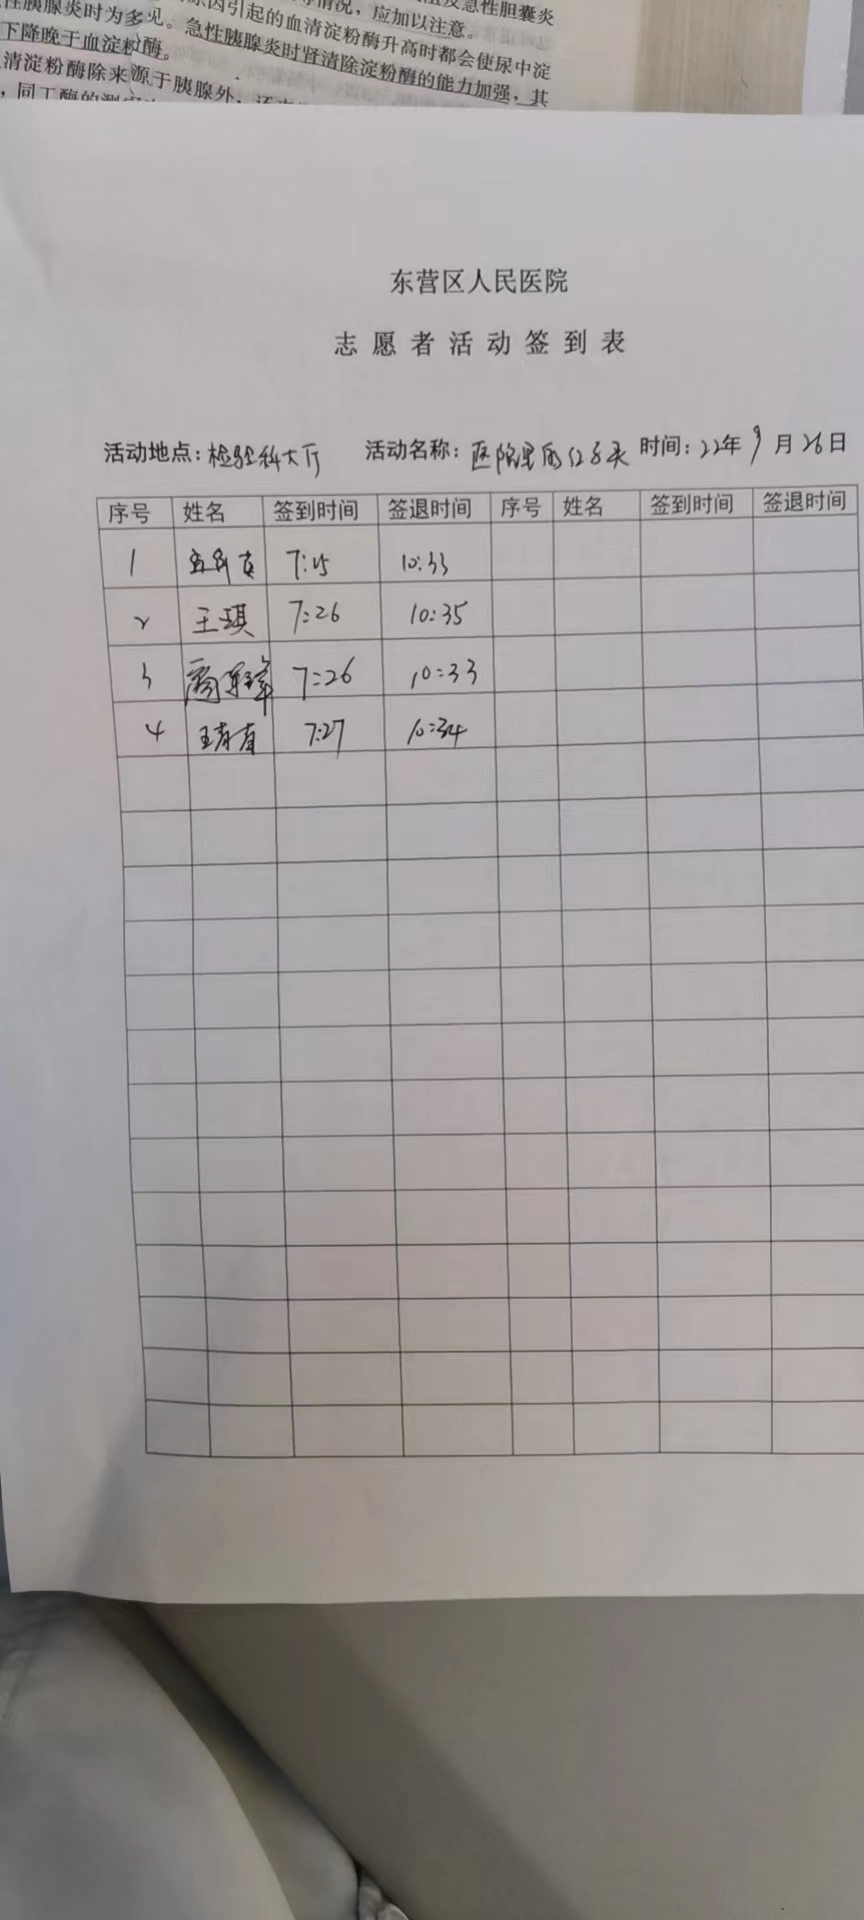 性胰腺炎时为多见。
因引起的血清淀粉酶升高时都会使尿中淀
情况，应加以注意。
及急性胆囊炎
下降晚于血淀粉酶。
急性胰腺炎时肾清除淀粉酶的能力加强，其
清淀粉酶除来源于胰腺外，还
，同工酶的测定
东营区人民医院
志愿者活动签到表
活动地点：检验科大厅 活动名称：医院里的红 时间：22年9月26日
序号 姓名 签到时间 签退时间 序号 姓名 签到时间 签退时间
1 7:15 10:33
2 王琪 7:26 10:35
3 7:26 10:33
4 王 7:27 10:34